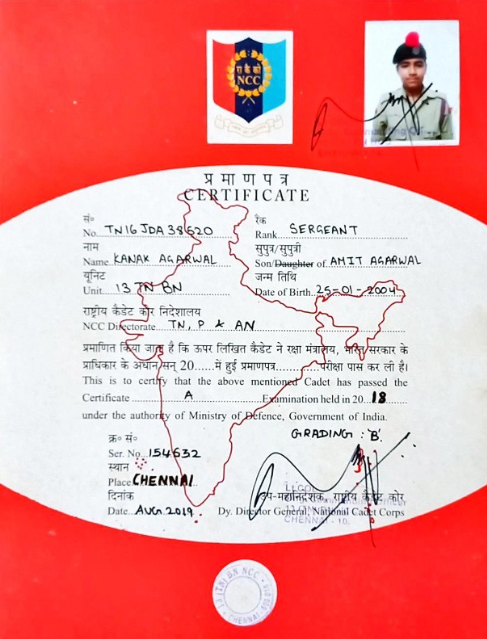 रा कै को
NCC
प्रमाणपत्र
CERTIFICATE
सं०
No. TN16 JDA 38520
रैंक
Rank SERGEANT
नाम
Name KANAK AGARWAL
सुपुत्र/सुपुत्री
Son/Daughter of AMIT AGARWAL
यूनिट
Unit 13 TN BN
जन्म तिथि
Date of Birth 25-01-2004
राष्ट्रीय कैडेट कोर निदेशालय
NCC Directorate TN, P & AN
प्रमाणित किया जाता है कि ऊपर लिखित कैडेट ने रक्षा मंत्रालय, भारत सरकार के
प्राधिकार के अधीन सन् 20......में हुई प्रमाणपत्र............परीक्षा पास कर ली है।
This is to certify that the above mentioned Cadet has passed the
Certificate A Examination held in 2018
under the authority of Ministry of Defence, Government of India.
GRADING : 'B'.
क्र० सं०
Ser. No. 154632
स्थान
Place CHENNAI
दिनांक
Date AUG 2019.
उप-महानिदेशक, राष्ट्रीय कैडेट कोर
Dy. Director General, National Cadet Corps
CHENNAI - 10.
(TN) BN NCC